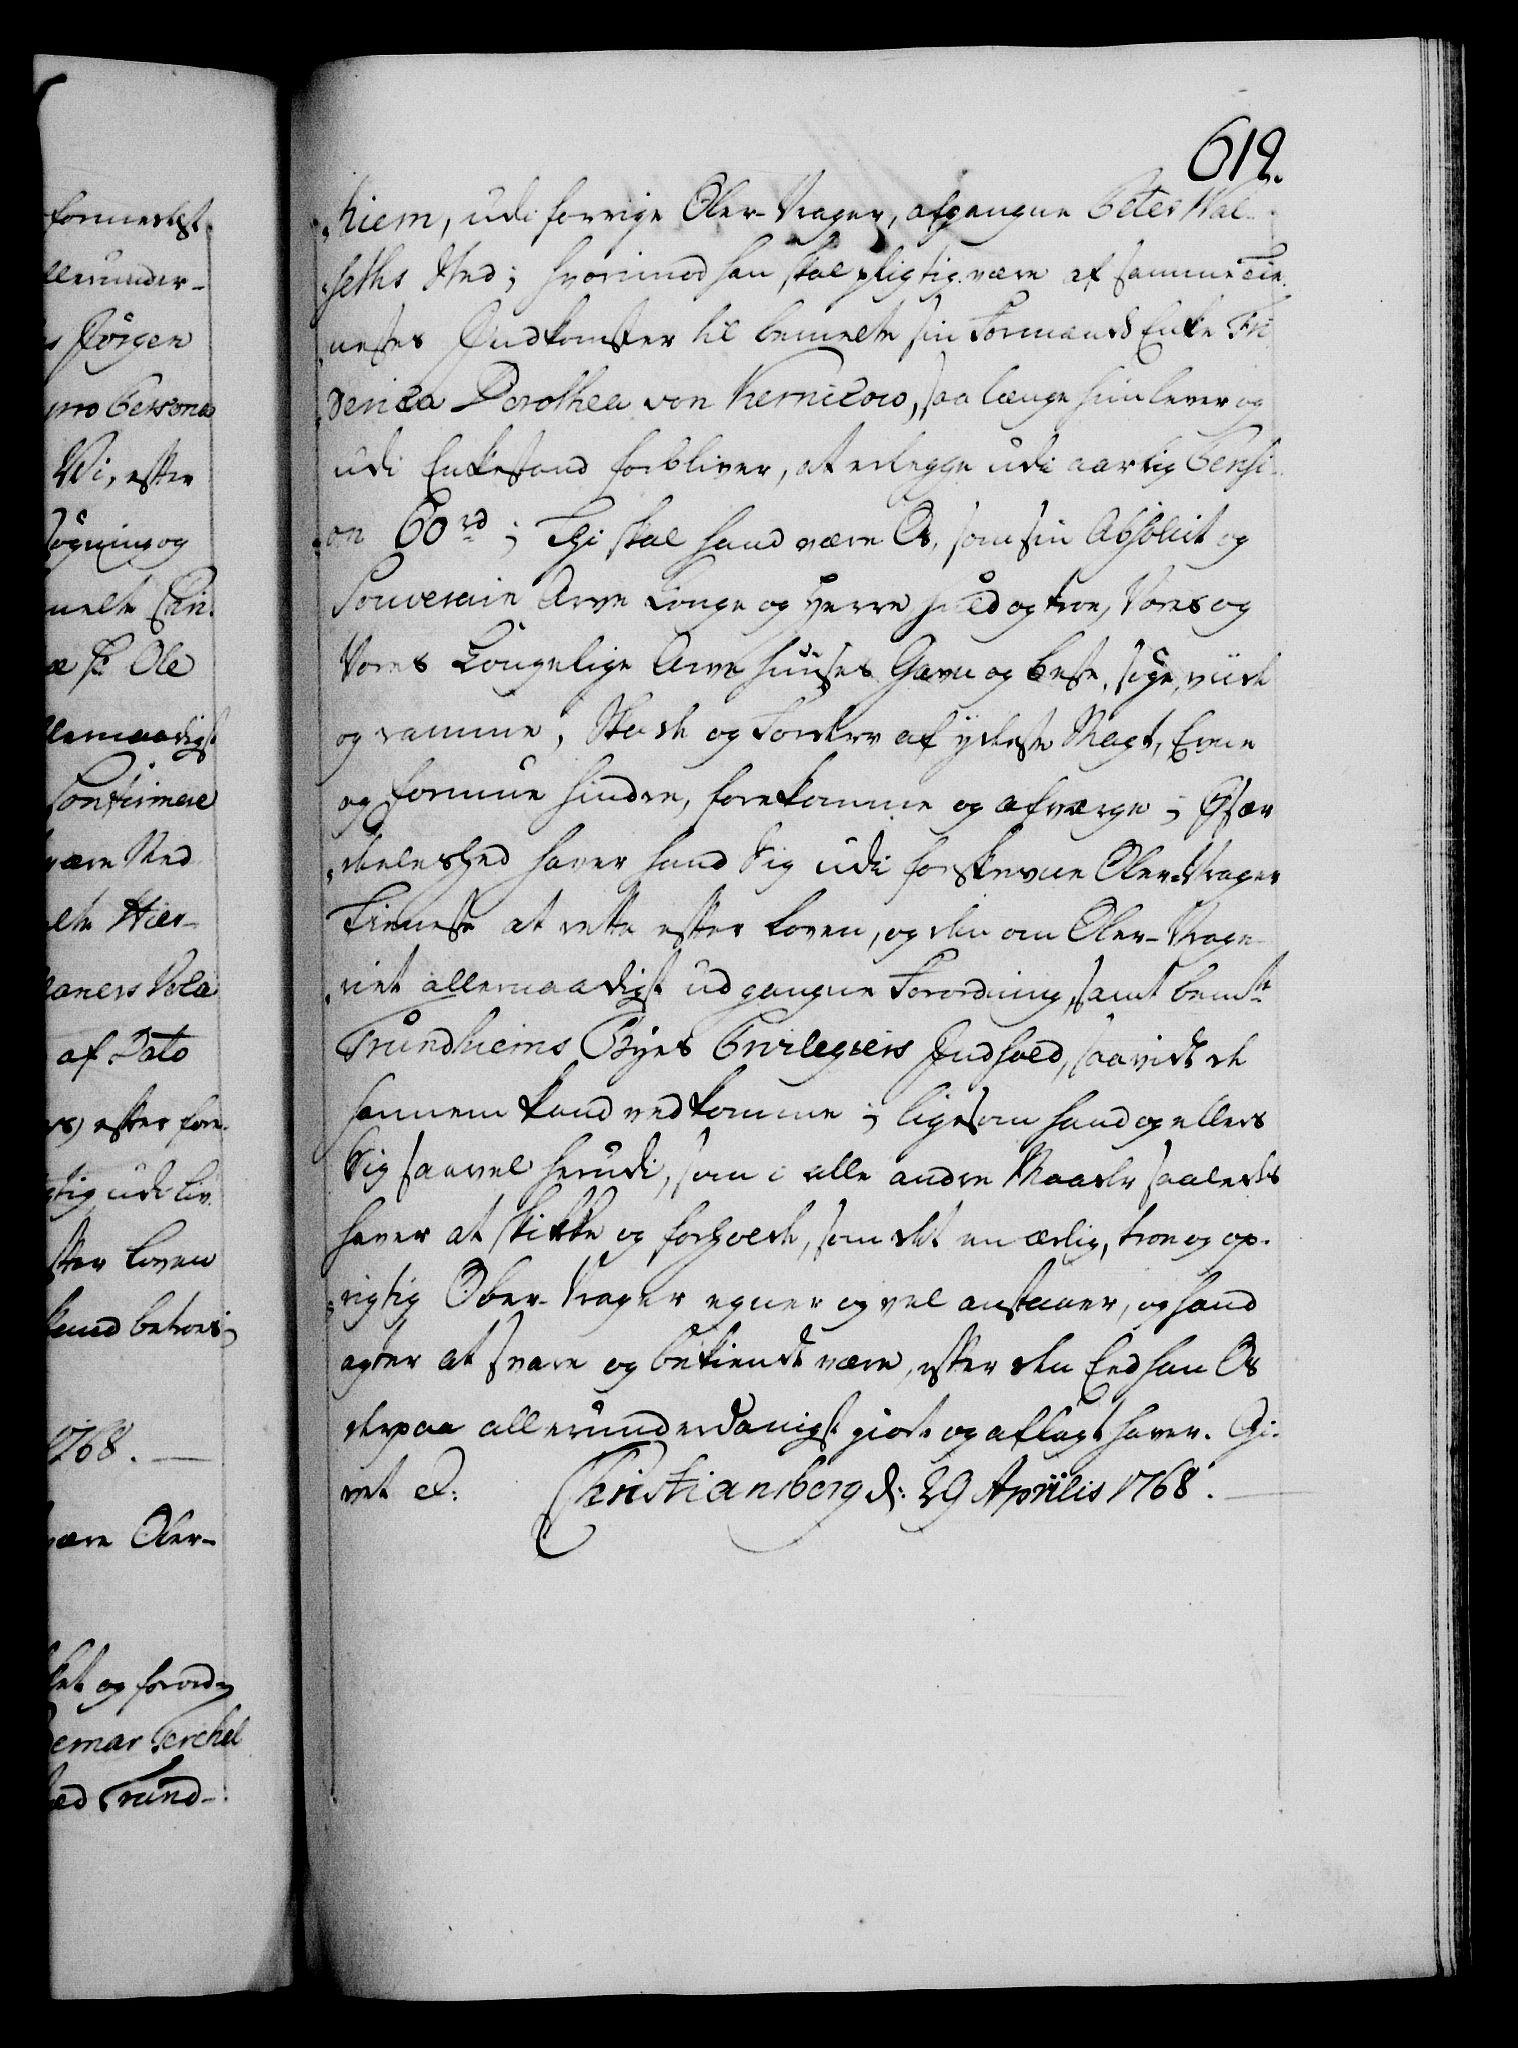 formerlgt
llerunder-
s Jörgen
pro Persona
Wi, efter
søgning og
melte Chri-
Ole
llernaadigst
Confirmere
være Med
elte Hær-
laners Vola
af Dato
efter fore-
gtig udi Liv
efter Loven
kand betroes
1768.
være Ober-
ket og forord-
demar Terchel
ved Trund-
619.
hiem, udi forrige Ober-Vrager, afgangne Peter Wal-
seths Sted; hvorimod han skal pligtig være af samme Tie-
nestes Indkomster til bemelte sin Formands Enke Fri-
derica Dorothea von Kernicow, saa længe hun lever og
udi Enkestand forbliver, at erlegge udi aarlig Pensi-
on 60 rd; Thi skal hand være Os, som sin Absolut og
Souverain Arve Konge og Herre huld og troe, Vores og
Vores Kongelige Arve Huuses Gavn og beste, søge, viide
og ramme, Skade og Forderv af yderste Magt, Evne
og formue hindre, forekomme og afværge; Især-
deleshed haver hand sig udi forskrevne Ober-Vrager
Tieneste at rette efter Loven, og den om Ober-Vrage-
riet allernaadigst udgangne Forordning, samt bemte
Trundhiems Byes Privilegiers Indhold, saavidt de
hannem kand vedkomme; ligesom hand og ellers
sig saavel herudi, som i alle andre Maader saaledes
haver at skikke og forholde, som det en ærlig, troe og op-
rigtig Ober-Vrager egner og vel anstaaer, og hand
agter at svare og bekiendt være, efter den Eed han Os
derpaa allerunderdanigst giort og aflagt haver. Gi-
vet p: Christiansborg d: 29 Aprilis 1768.